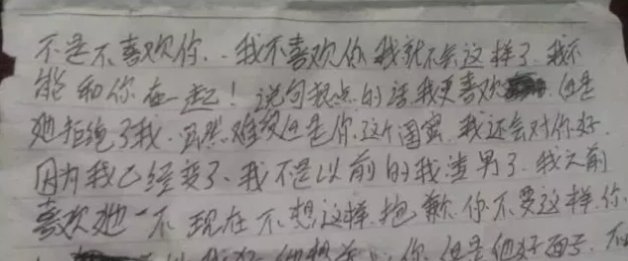 不是不喜欢你..我不喜欢你我就不会这样了.我不
能和你在一起！说句粗点的话我更喜欢 但是
她拒绝了我.虽然难受但是你这个闺蜜.我还会对你好.
因为我已经变了、我不是以前的我渣男了.我之前
喜欢她 不 现在不想这样.抱歉.你不要这样.你
你 但是他好面子.